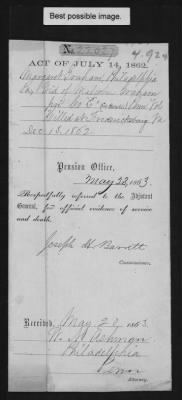 Best possible image.
No. 22027
4.924
ACT OF JULY 14, 1862.
Margaret Graham, Philadelphia
Pa, Wid of William Graham
pvt Co "E" Penn Vol
Killed at Fredericksburg Va
Dec 13, 1862
Pension Office,
May 23, 1863.
Respectfully referred to the Adjutant
General, for official evidence of service
and death.
Joseph H. Barrett
Commissioner.
Received, May 20, 1863
Philadelphia
Penn
Attorney.